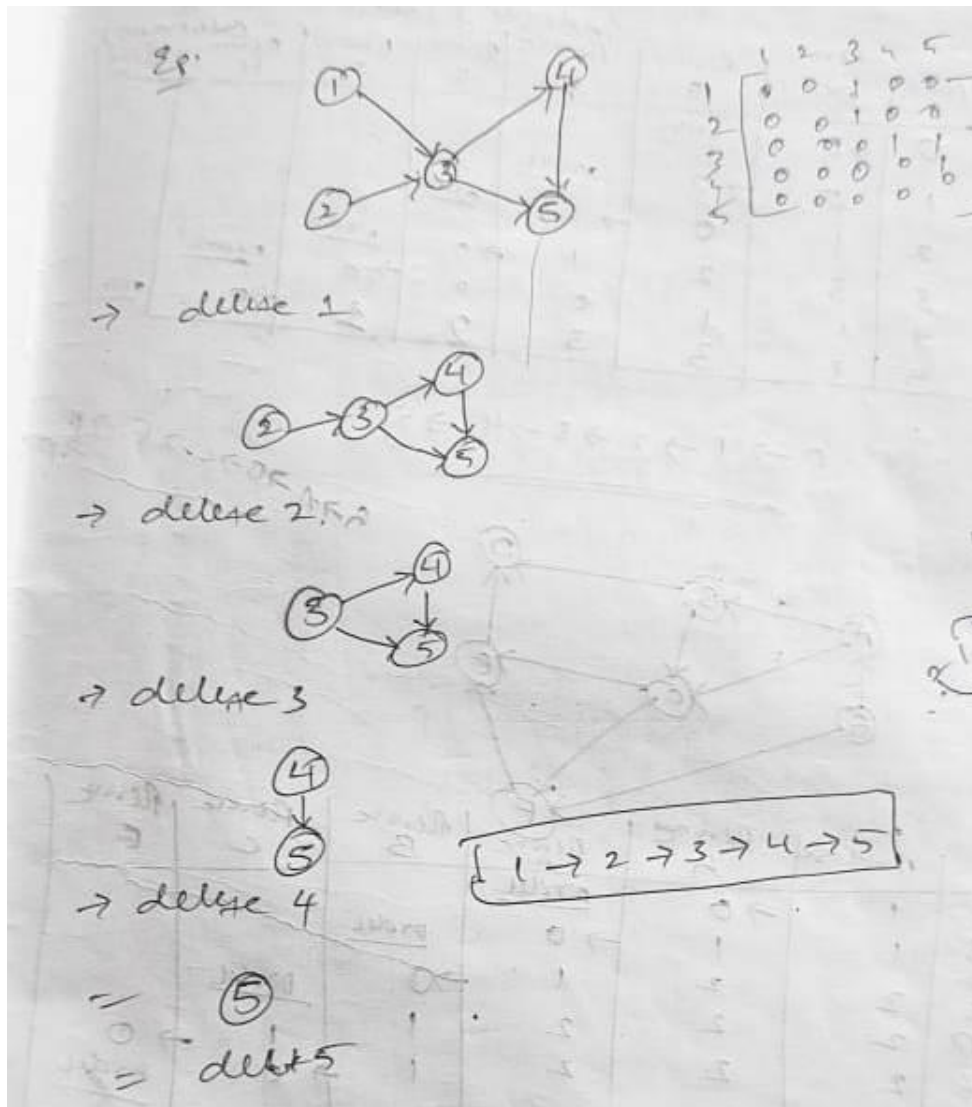 Eg:
1 4
3
2 5
1 2 3 4 5
1 0 0 1 0 0
2 0 0 1 0 0
3 0 0 0 1 1
4 0 0 0 0 1
5 0 0 0 0 0
→ delete 1
4
2 3
5
→ delete 2
4
3
5
→ delete 3
4
5
1 → 2 → 3 → 4 → 5
→ delete 4
= 5
= delete 5